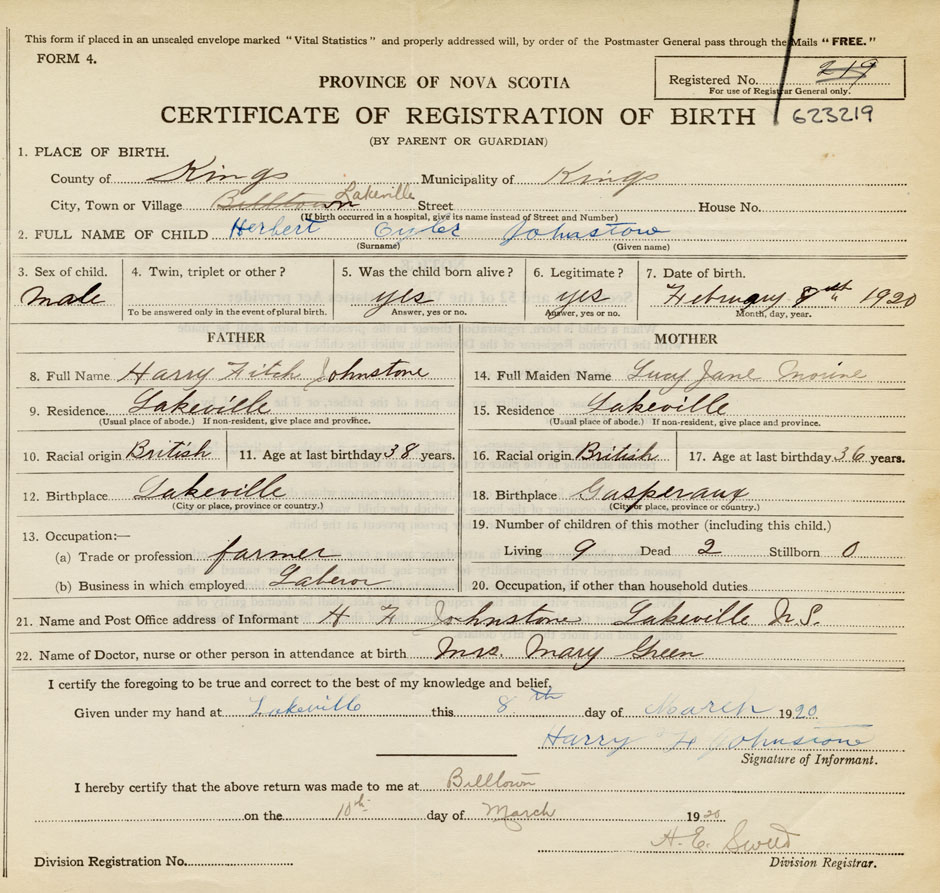 This form if placed in an unsealed envelope marked "Vital Statistics" and properly addressed will, by order of the Postmaster General pass through the Mails "FREE."
FORM 4.
PROVINCE OF NOVA SCOTIA
Registered No. 219
For use of Registrar General only.
CERTIFICATE OF REGISTRATION OF BIRTH 623219
(BY PARENT OR GUARDIAN)
1. PLACE OF BIRTH.
County of Kings Municipality of Kings
City, Town or Village Billtown Lakeville Street House No.
(If birth occurred in a hospital, give its name instead of Street and Number)
2. FULL NAME OF CHILD Herbert Johnstone
(Surname) (Given name)
3. Sex of child. 4. Twin, triplet or other? 5. Was the child born alive? 6. Legitimate? 7. Date of birth.
Male yes yes February 8th 1920
To be answered only in the event of plural birth. Answer, yes or no. Answer, yes or no. Month, day, year.
FATHER
8. Full Name Harry Fitch Johnstone
9. Residence. Lakeville
(Usual place of abode.) If non-resident, give place and province.
10. Racial origin British 11. Age at last birthday 38 years.
12. Birthplace Lakeville
(City or place, province or country.)
13. Occupation:—
(a) Trade or profession farmer
(b) Business in which employed Laberor
MOTHER
14. Full Maiden Name Lucy Jane Morine
15. Residence Lakeville
(Usual place of abode.) If non-resident, give place and province.
16. Racial origin British 17. Age at last birthday 36 years.
18. Birthplace Gasperaux
(City or place, province or country.)
19. Number of children of this mother (including this child.)
Living 9 Dead 2 Stillborn 0
20. Occupation, if other than household duties
21. Name and Post Office address of Informant H F Johnstone Lakeville N.S.
22. Name of Doctor, nurse or other person in attendance at birth Mrs. Mary Green
I certify the foregoing to be true and correct to the best of my knowledge and belief,
Given under my hand at Lakeville this 8th day of March 1920
Harry F Johnstone
Signature of Informant.
I hereby certify that the above return was made to me at Billtown
on the 10th day of March 1920
H. E.
Division Registration No. Division Registrar.